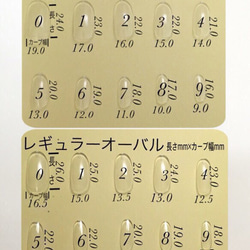 0 1 2 3 4
長さ
24.0 23.0 22.0 22.0 21.0
【カーブ幅】
19.0 17.0 16.0 15.0 14.0
5 6 7 8 9
20.0 20.0 18.0 17.0 16.0
13.0 12.0 11.0 10.0 9.0
レギュラーオーバル 長さmm×カーブ幅mm
0 1 2 3 4
長さ
26.0 25.0 24.0 24.0 23.0
【カーブ幅】
16.5 15.0 13.5 13.0 12.5
5 6 7 8 9
22.0 22.0 19.0 18.0